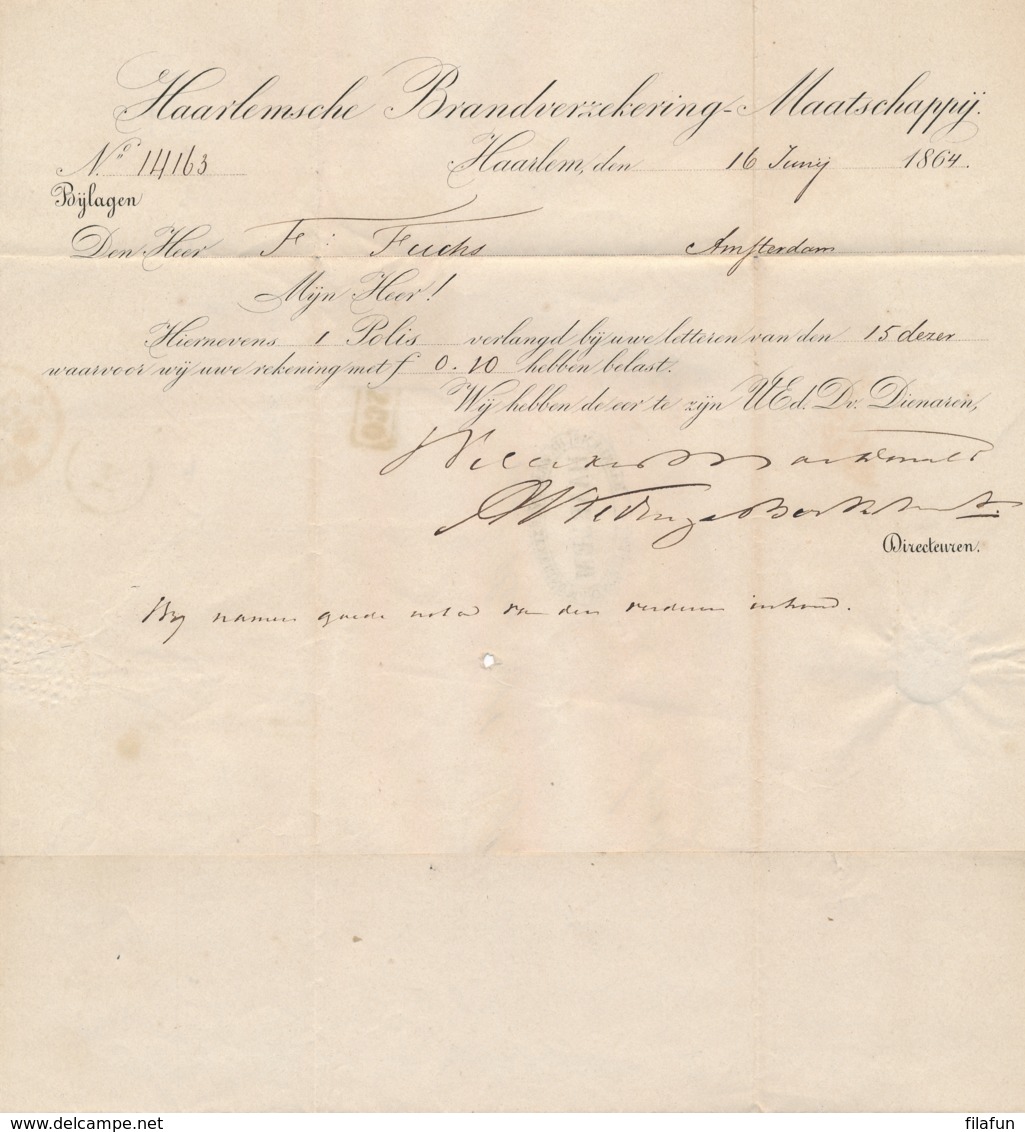 Haarlemsche Brandverzekering-Maatschappij.
No 14163 Haarlem, den 16 Junij 1864.
Bijlagen
Den Heer F: Fuchs Amsterdam
Mijn Heer!
Hiernevens 1 Polis verlangd bij uwe letteren van den 15 dezer
waarvoor wij uwe rekening met f 0.10 hebben belast.
Wij hebben de eer te zijn UEd. Dv. Dienaren,
Directeuren.
Wij namen goede nota van den verderen inhoud.
www.delcampe.net
filafun